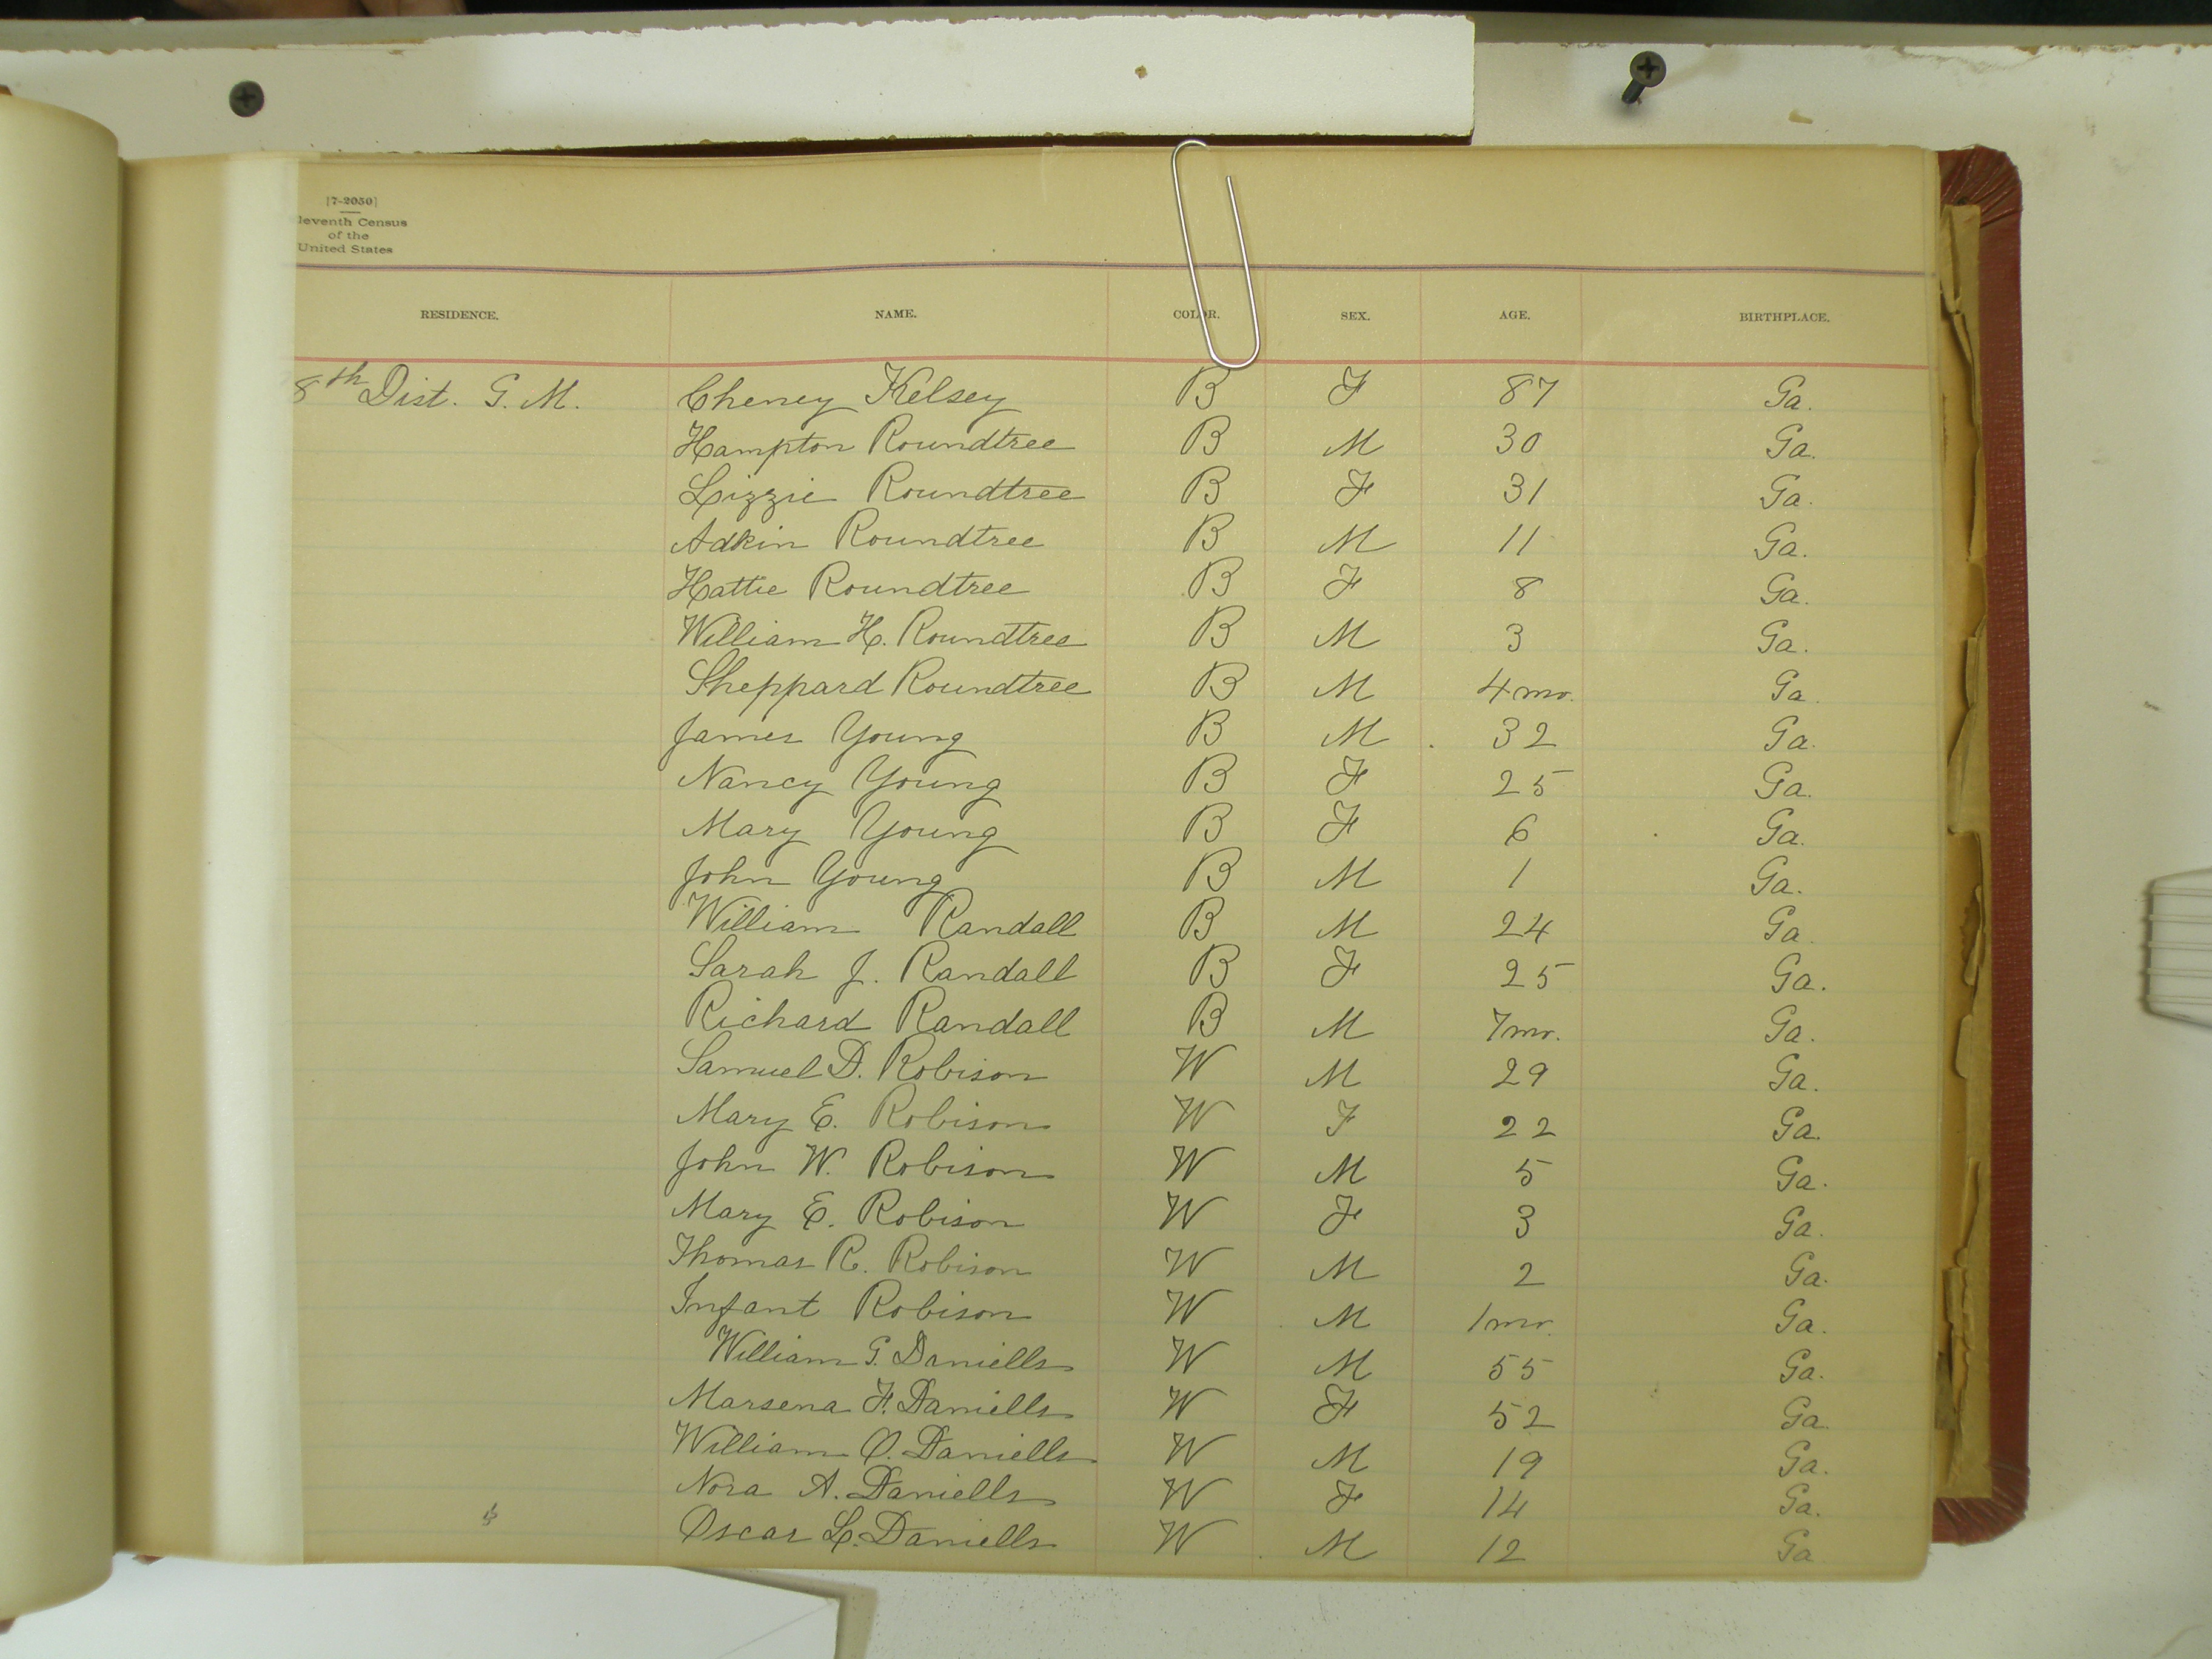 [7-2050]
leventh Census
of the
United States
RESIDENCE. NAME. COLOR. SEX. AGE. BIRTHPLACE.
8th Dist. G. M. Cheney Kelsey B F 87 Ga.
Hampton Roundtree B M 30 Ga.
Lizzie Roundtree B F 31 Ga.
Adkin Roundtree B M 11 Ga.
Hattie Roundtree B F 8 Ga.
William H. Roundtree B M 3 Ga.
Sheppard Roundtree B M 4 mo. Ga.
James Young B M 32 Ga.
Nancy Young B F 25 Ga.
Mary Young B F 6 Ga.
John Young B M 1 Ga.
William Randall B M 24 Ga.
Sarah J. Randall B F 25 Ga.
Richard Randall B M 7 mo. Ga.
Samuel D. Robison W M 29 Ga.
Mary E. Robison W F 22 Ga.
John W. Robison W M 5 Ga.
Mary E. Robison W F 3 Ga.
Thomas R. Robison W M 2 Ga.
Infant Robison W M 1 mo. Ga.
William G. Daniells W M 55 Ga.
Marsena F. Daniells W F 52 Ga.
William O. Daniells W M 19 Ga.
Nora A. Daniells W F 14 Ga.
Oscar L. Daniells W M 12 Ga